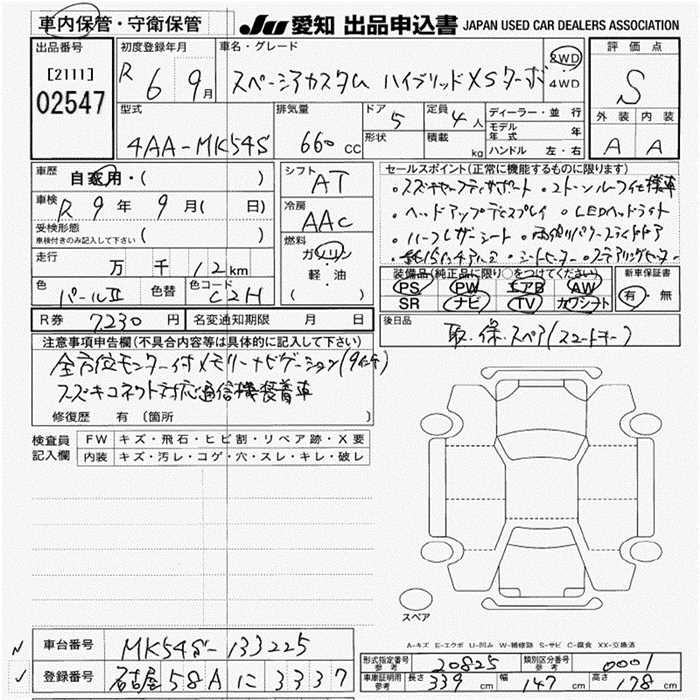 車内保管・守衛保管
JU 愛知 出品申込書 JAPAN USED CAR DEALERS ASSOCIATION
出品番号
[2111]
02547
初度登録年月
R 6 9月
車名・グレード
スペーシアカスタム ハイブリッドXSターボ
2WD
4WD
評価点
S
外装 内装
A A
型式
4AA-MK54S
排気量
660 CC
ドア 5
形状
定員 4人
積載 kg
ディーラー・並行
モデル年式 年
ハンドル 左・右
車歴
自家用・( )
車検
R 9年 9月( 日)
受検形態
車検付きのみ記入して下さい ( )
走行
万 千 12km
色 パールII 色替 色コード C2H
シフト AT
冷房 AAC
燃料
ガソリン
軽・油
( )
セールスポイント(正常に機能するものに限ります)
・スズキセーフティサポート ・2トーンルーフ仕様車
・ヘッドアップディスプレイ ・LEDヘッドライト
・ハーフレザーシート ・両側パワースライドドア
・純正15インチアルミ ・シートヒーター ・ステアリングヒーター
装備品(純正品に限り○をつけてください)
PS PW エアB AW
SR ナビ TV カワシート
新車保証書
有・無
R券 7230 円 名変通知期限 月 日
後日品 取・保・スペア(スマートキー)
注意事項申告欄(不具合内容等は具体的に記入して下さい)
全方位モニター付メモリーナビゲーション(9インチ)
スズキコネクト対応通信機装着車
修復歴 有 〔箇所 〕
検査員記入欄
FW キズ・飛石・ヒビ割・リペア跡・X要
内装 キズ・汚レ・コゲ・穴・スレ・キレ・破レ
スペア
A-キズ E-エクボ U-凹み W-補修跡 S-サビ C-腐食 XX-交換済
車台番号 MK54S-133225
登録番号 名古屋 58A に 3337
形式指定番号 参考 20825 類別区分番号 参考 0001
車庫証明用 参考 長さ 339 cm 幅 147 cm 高さ 178 cm